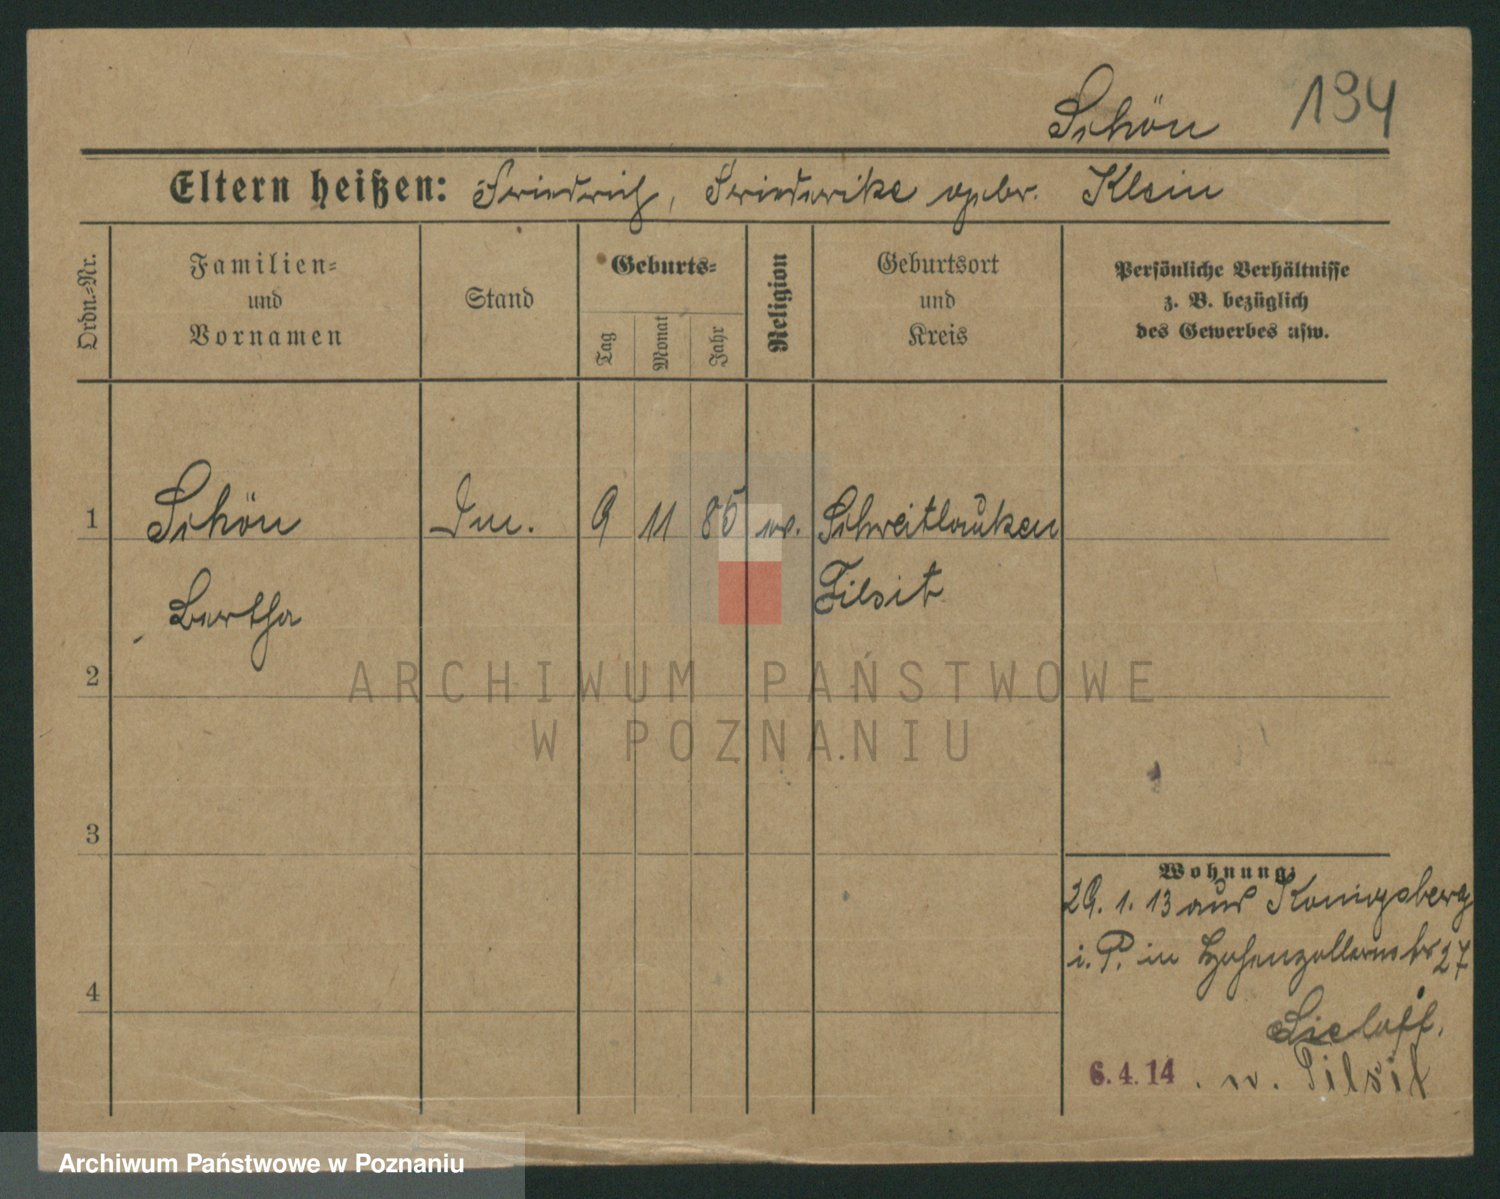 Schön 194
Eltern heißen: Friedrich, Friederike gebr. Klein
Ordn.-Nr.
Familien-
und
Vornamen
Stand
Geburts-
Tag
Monat
Jahr
Religion
Geburtsort
und
Kreis
Persönliche Verhältnisse
z. B. bezüglich
des Gewerbes usw.
1 Schön 9 11 85 ev. Schreitlauken
Bertha Tilsit
2
3
Wohnung:
29. 1. 13 aus Königsberg
i. P. in Hohenzollernstr 27
4
6.4.14 . n. Tilsit
ARCHIWUM PAŃSTWOWE
W POZNANIU
Archiwum Państwowe w Poznaniu